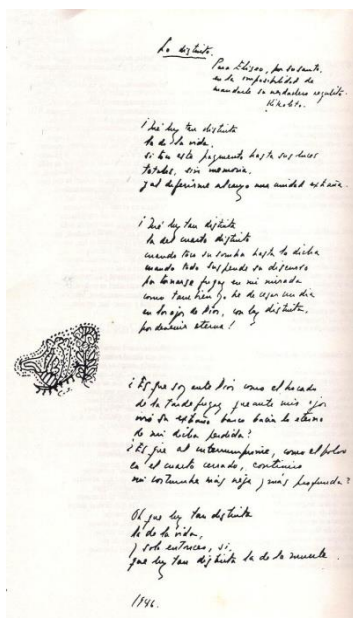 Lo distinto.
Para Eliseo, por su santo,
en la imposibilidad de
mandarle su verdadero regalito.
¡Qué luz tan distinta
la de la vida,
si toca este fragmento hasta sus luces
totales, sin memoria,
y al deferirme atraigo una unidad extraña.
¡Qué luz tan distinta
la del cuarto distinto
cuando toca su sombra hasta la dicha
cuando todo suspende su discurso
por tornarse fugaz en mi mirada
como también yo he de cegar un día
en los ojos de Dios, con luz distinta,
por devenir eterna!
¿Es que soy ante Dios como el bocado
de la tarde fugaz, que ante mis ojos
su extraño barco hacia lo eterno
de mi dicha perdida?
¿Es que al interrumpirme, como el polvo
en el cuarto cerrado, continúo
mi costumbre más vieja y más profunda?
Oh qué luz tan distinta
la de la vida,
y solo entonces, sí,
qué luz tan distinta la de la muerte.
1946.